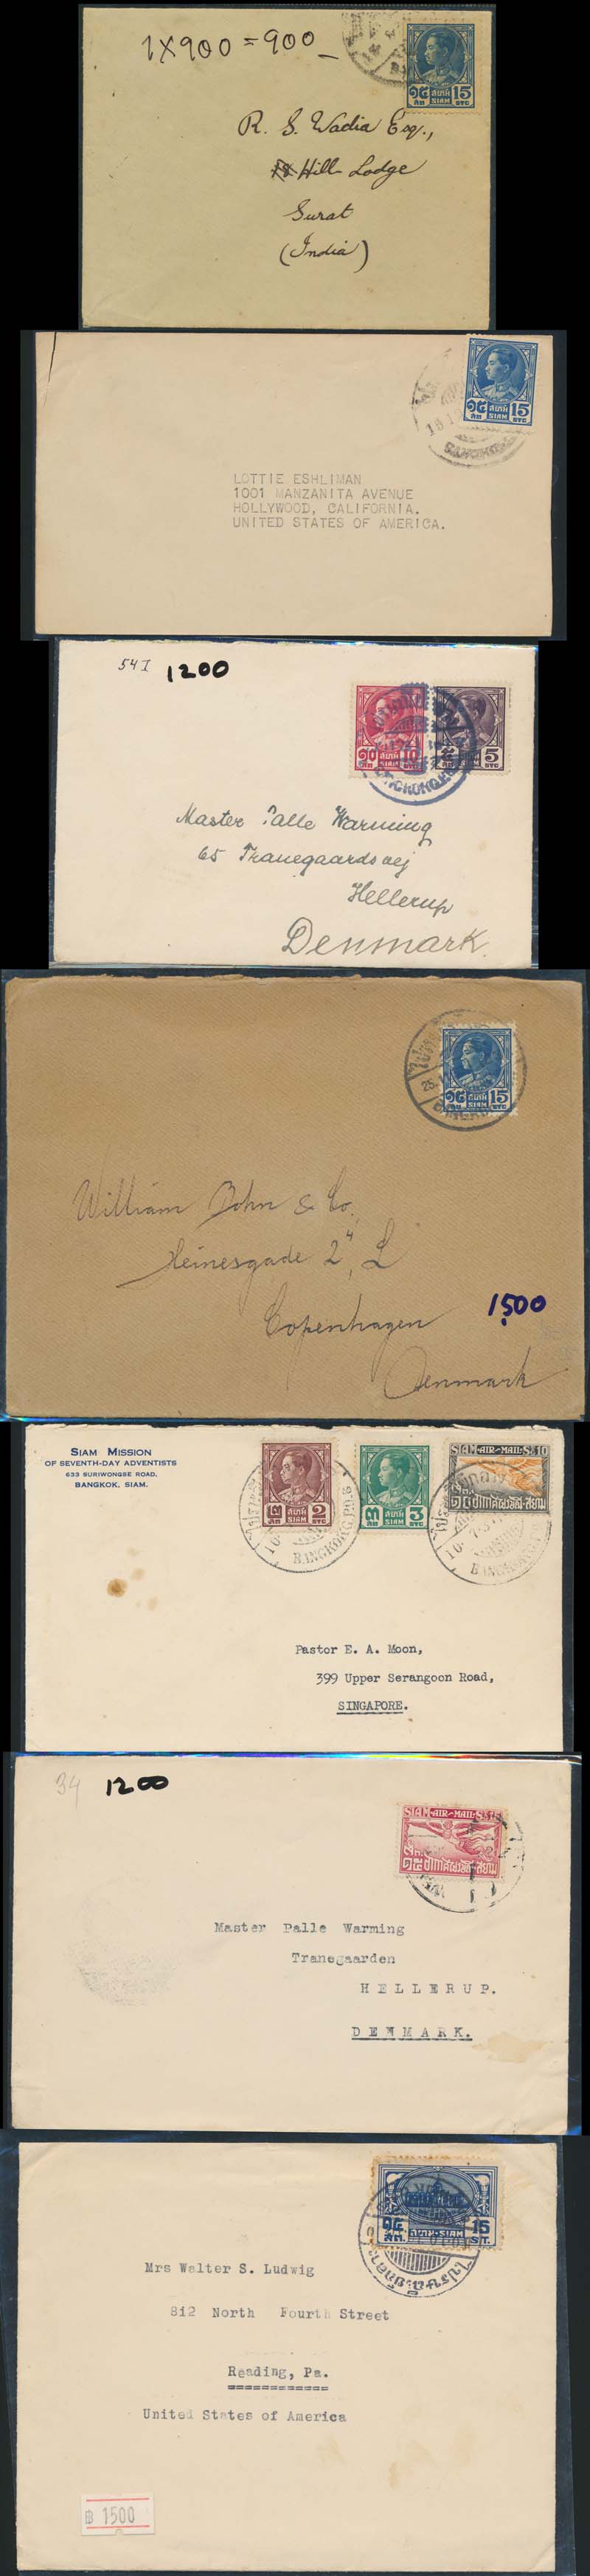 1X900 = 900
๑๕ สยาม 15
สต SIAM STG
R. S. Wadia Esq.,
Hill Lodge
Surat
(India)
๑๕ สยาม 15
สต SIAM STG
LOTTIE ESHLIMAN
1001 MANZANITA AVENUE
HOLLYWOOD, CALIFORNIA.
UNITED STATES OF AMERICA.
54I 1200
๑๐ 5
Master Palle Warming
65 Tranegaardsvej
Hellerup
Denmark.
๑๕ สยาม 15
สต SIAM STG
William Bohn & Co.
Heinesgade 2
Copenhagen
Denmark
1500
SIAM MISSION
OF SEVENTH-DAY ADVENTISTS
633 SURIWONGSE ROAD,
BANGKOK, SIAM.
๒ สยาม 2
สต SIAM STG
๓ สยาม 3
สต SIAM STG
SIAM-AIR-MAIL-St.10
BANGKOK G.P.O.
Pastor E. A. Moon,
399 Upper Serangoon Road,
SINGAPORE.
34 1200
SIAM-AIR-MAIL-St.15
Master Palle Warming
Tranegaarden
HELLERUP.
DENMARK.
๑๕ 15
สต. สยาม-SIAM ST.
Mrs Walter S. Ludwig
812 North Fourth Street
Reading, Pa.
United States of America
฿ 1500